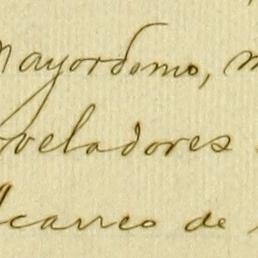 Mayordomo,
veladores
Acarreo de